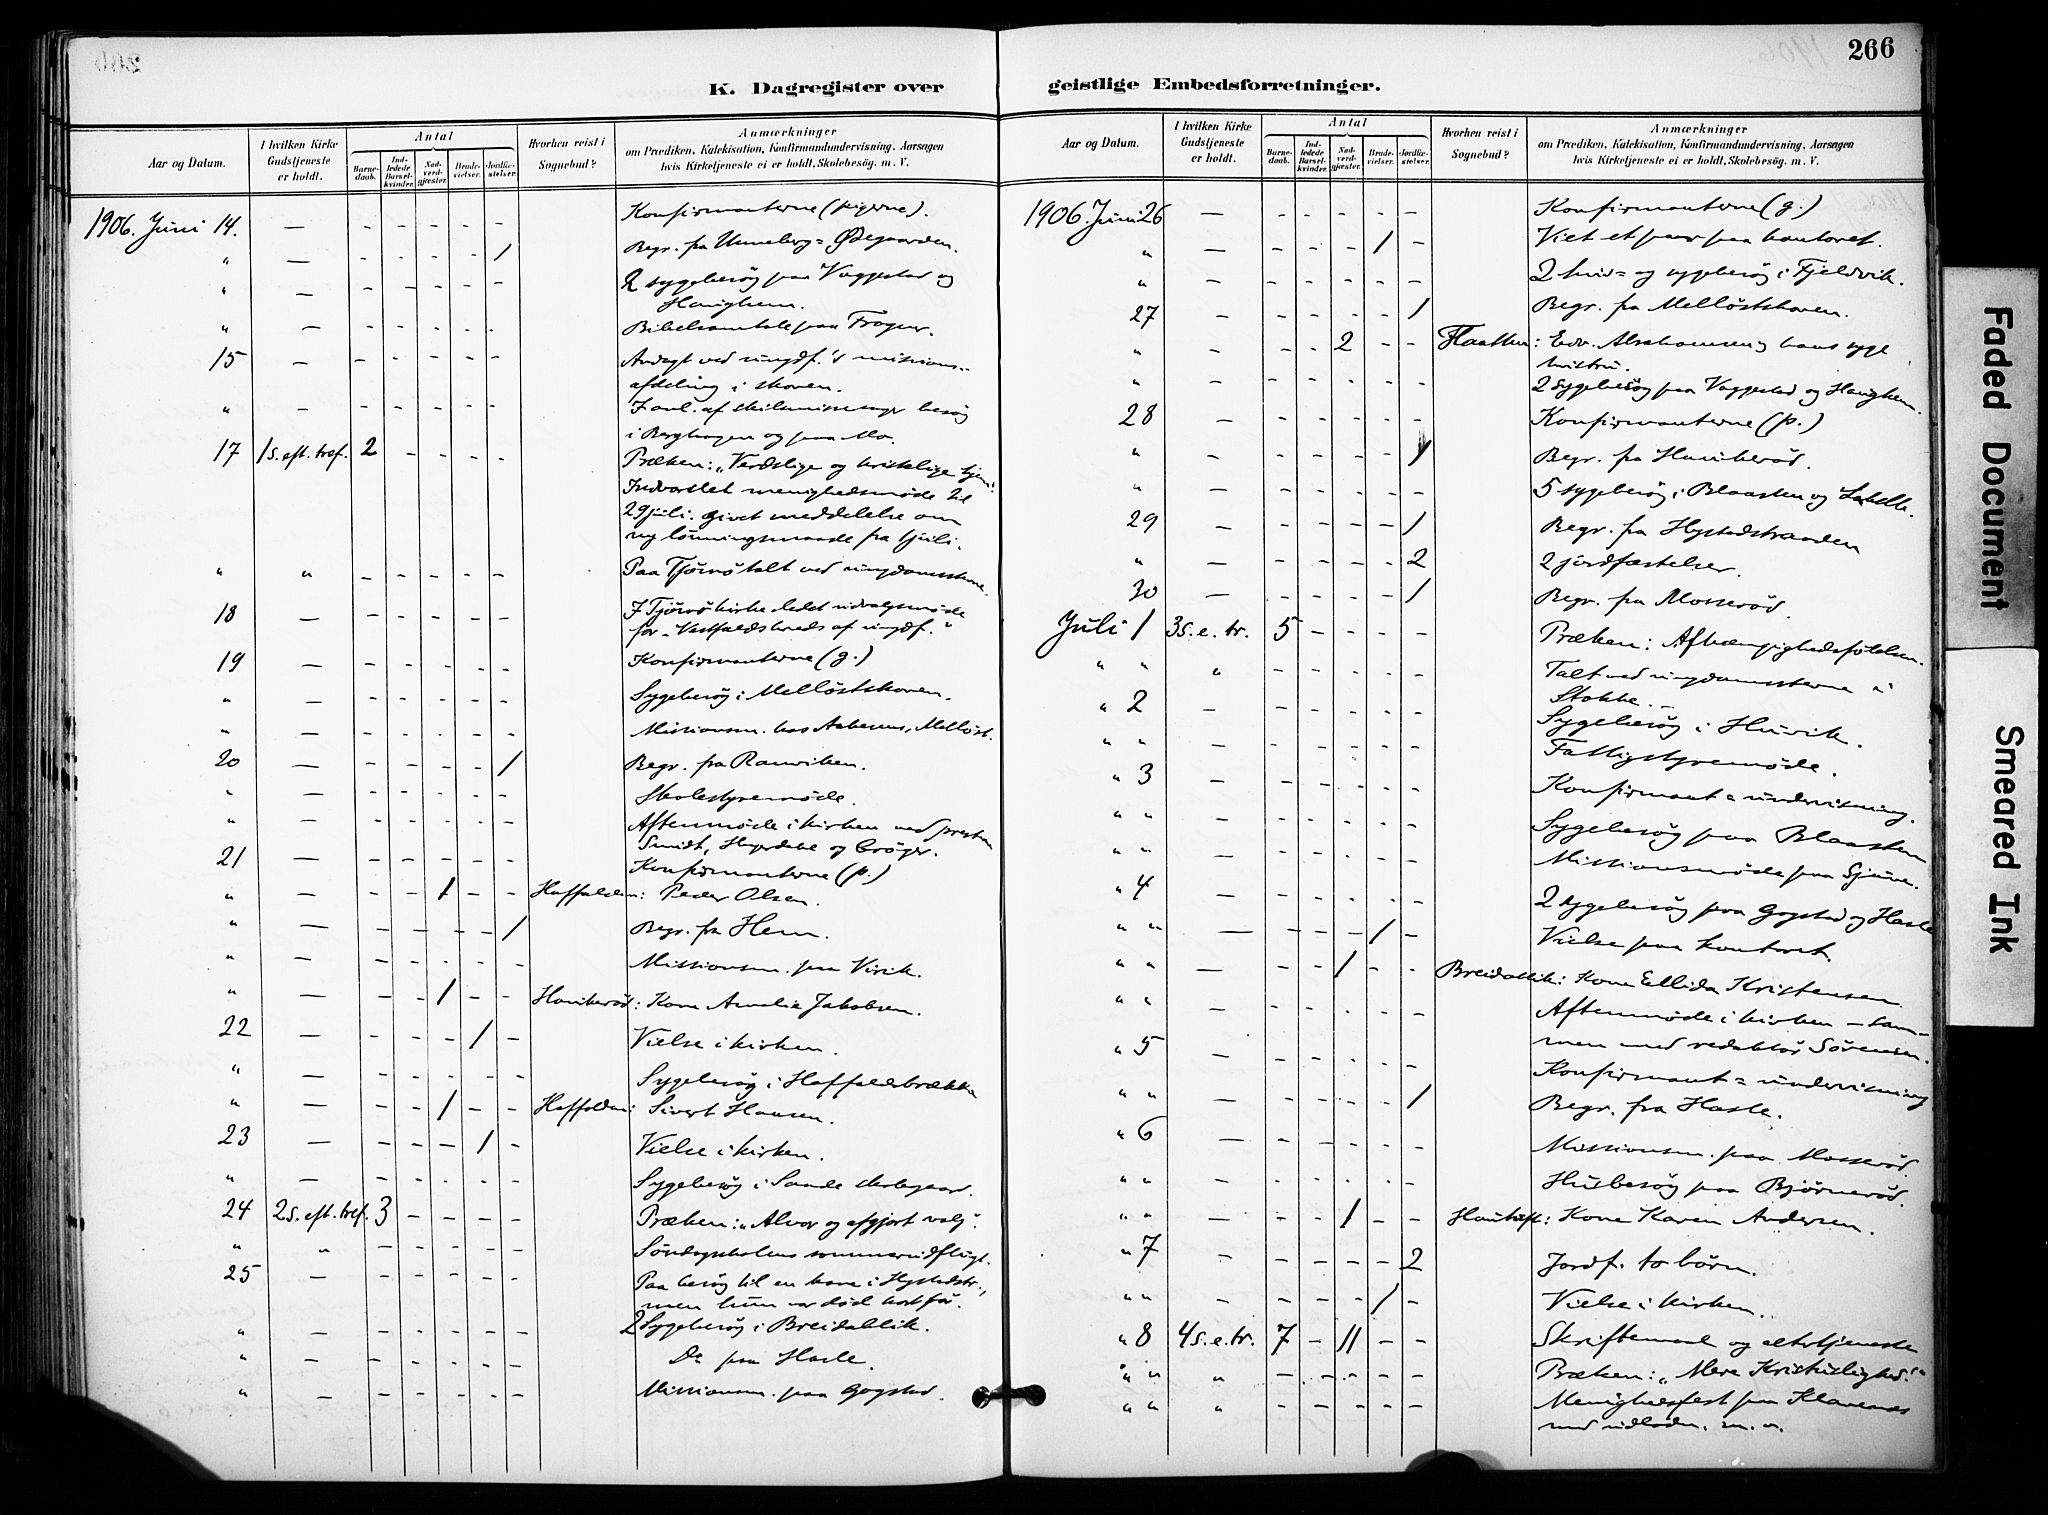 266
K. Dagregister over geistlige Embedsforretninger.
Aar og Datum.
I hvilken Kirke Gudstjeneste er holdt.
Antal
Barnedaab.
Indledede Barselkvinder.
Nadverdgjæster.
Brudevielser.
Jordfæstelser.
Hvorhen reist i Sognebud?
Anmærkninger
om Prædiken, Katekisation, Konfirmandundervisning, Aarsagen
hvis Kirketjeneste ei er holdt, Skolebesög. m. V.
1906. Juni 14. — - - - - - Konfirmanterne (pigerne).
" — - - - - 1 Begr. fra Unneberg=Ødegaarden.
" — - - - - - 2 sygebesög paa Vaggestad og
Haughem.
" — - - - - - Bibelsamtale paa Frøger.
15 — - - - - - Andagt ved ungdf.'s missions-
afdeling i skoven.
" - - - - - - I anl. af besög
i Berghagen og paa Mo.
17 1 s. eft. tref. 2 - - - - Præken: "Verdslige og kristelige
menighedsmöde til
29 juli. Givet meddelelse om
ny lönningsmaade fra 1 juli.
" " - - - - - Paa Tjömö talt ved ungdomsstevne.
18 — - - - - - I Tjömö kirke ledet udvalgsmöde
for "Vestfoldskreds af ungdf."
19 — - - - - - Konfirmanterne (g.)
" — - - - - - Sygebesög i Mellöstskoven.
" — - - - - - Missionsm. hos Mellöst.
20 — - - - - 1 Begr. fra Ranviken.
" — - - - - - Skolestyremöde.
" — - - - - - Aftenmöde i kirken ved
Smidt, og
21 — - - - - - Konfirmanterne (p.)
" — - - 1 - - Haffalden: Peder Olsen.
" — - - - - 1 Begr. fra Hem.
" — - - - - - Missionsm. paa Virik.
" — - - 1 - - Haukeröd: Kone Amelia Jakobsen.
22 — - - - 1 - Vielse i kirken.
" — - - - - - Sygebesög i Haffaldsbrække
" — - - 1 - - Haffalden: Sivert Hansen.
23 — - - - 1 - Vielse i kirken.
" — - - - - - Sygebesög i Sande
24 2 s. eft. tref. 3 - - - - Præken: "Alvor og afgjort valg".
" " - - - - - Söndagskolens sommerudflugt.
25 — - - - - - Paa besög til en kone i Hystadstr.,
men hun var död
" — - - - - - 2 Sygebesög i Breidablik.
" — - - - - - Do paa Hasle.
" — - - - - - Missionsm. paa Gogstad.
Aar og Datum.
I hvilken Kirke Gudstjeneste er holdt.
Antal
Barnedaab.
Indledede Barselkvinder.
Nadverdgjæster.
Brudevielser.
Jordfæstelser.
Hvorhen reist i Sognebud?
Anmærkninger
om Prædiken, Katekisation, Konfirmandundervisning, Aarsagen
hvis Kirketjeneste ei er holdt, Skolebesög. m. V.
1906. Juni 26 — - - - - - Konfirmanterne (g.)
" — - - - 1 - Viet et par paa kontoret.
" — - - - - - 2 hus= og sygebesög i Fjeldvik.
27 - - - - - 1 Begr. fra Mellöstskoven.
" - - - 2 - - Flaatten: Edv. Abrahamsen og hans syge
hustru.
" - - - - - - 2 sygebesög paa Vaggestad og Haughem.
28 — - - - - - Konfirmanterne (p.)
" - - - - - 1 Begr. fra Haukeröd.
" — - - - - - 5 sygebesög i Blaasten og
29 — - - - - 1 Begr. fra Hystadstranden
" — - - - - 2 2 jordfæstelser.
30 — - - - - 1 Begr. fra Mosseröd
Juli 1 3 s. e. tr. 5 - - - - Præken: Afhængighedsfölelsen.
" " " - - - - - Talt ved ungdomsstevne i
Stokke.
" 2 - - - - - - Sygebesög i Huvik.
" " - - - - - - Fattigstyremöde.
" 3 — - - - - - Konfirmant=undervisning.
" " — - - - - - Sygebesög paa Blaasten
" " — - - - - - Missionsmöde paa
" 4 - - - - - - 2 sygebesög paa Gogstad og Hasle
" " — - - - 1 - Vielse paa kontoret.
" " — - - 1 - - Breidablik: Kone Ellida Kristensen.
" " — - - - - - Aftenmöde i kirken - sam-
men med redaktör Sörensen.
" 5 — - - - - - Konfirmant=undervisning
" " — - - - - 1 Begr. fra Hasle.
" 6 — - - - - - Missionsm. paa Mosseröd
" " - - - - - - Husbesög paa Bjørneröd.
" " — - - 1 - - Kone Karen Andersen.
" 7 — - - - - 2 Jordf. to börn.
" " — - - - 1 - Vielse i kirken.
" 8 4 s. e. tr. 7 - 11 - - Skriftemaal og altertjeneste
" " " - - - - - Præken: "Mere Kristuslighed."
" " " - - - - - Menighedsfest paa Klavenæs
med m. m.
Faded Document
Smeared Ink